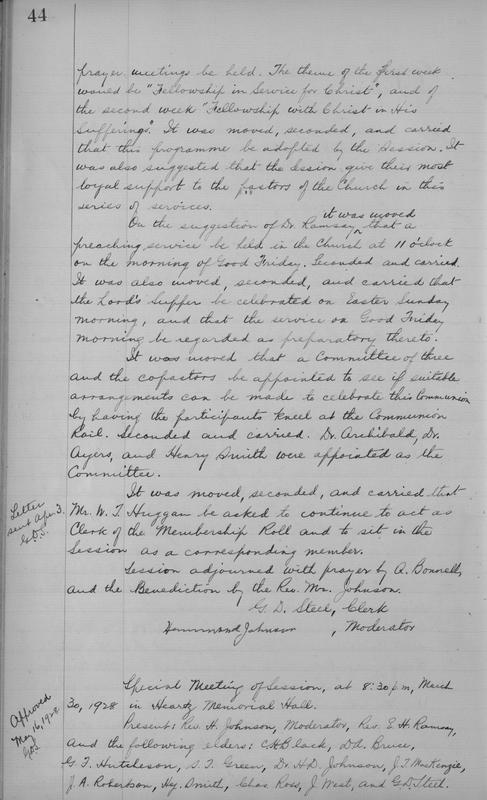 44
prayer meetings be held. The theme of the first week
would be "Fellowship in Service for Christ", and of
the second week "Fellowship with Christ in His
Sufferings". It was moved, seconded, and carried
that this programme be adopted by the Session. It
was also suggested that the Session give their most
loyal support to the pastors of the Church in this
series of services.
On the suggestion of Dr. Ramsay, it was moved that a
preaching service be held in the Church at 11 o'clock
on the morning of Good Friday. Seconded and carried.
It was also moved, seconded, and carried that
the Lord's Supper be celebrated on Easter Sunday
morning, and that the service on Good Friday
morning be regarded as preparatory thereto.
It was moved that a Committee of three
and the copastors be appointed to see if suitable
arrangements can be made to celebrate this Communion
by having the participants kneel at the Communion
Rail. Seconded and carried. Dr. Archibald, Dr.
Ayers, and Henry Smith were appointed as the
Committee.
Letter
sent Apr. 3.
G.D.S.
It was moved, seconded, and carried that
Mr. W. T. Huggan be asked to continue to act as
Clerk of the Membership Roll and to sit in the
Session as a corresponding member.
Session adjourned with prayer by A. Bonnell,
and the Benediction by the Rev. Mr. Johnson.
G. D. Steel, Clerk
Hammond Johnson, Moderator
Approved
May 16, 1928
G.D.S.
Special Meeting of Session, at 8:30 p.m, March
30, 1928 in Heartz Memorial Hall.
Present: Rev. H. Johnson, Moderator, Rev. E. H. Ramsay,
and the following elders: C.H. Black, D.L. Bruce,
G. F. Hutcheson, S. F. Green, Dr. H.D. Johnson, J. F. MacKenzie,
J. A. Robertson, Hy. Smith, Chas Ross, J. West, and G.D. Steel.